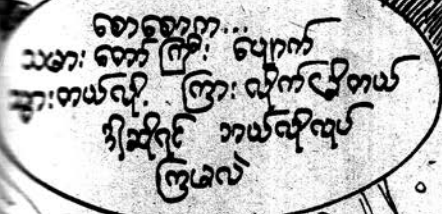 စောစောက...
သမားတော်ကြီး ပျောက်
သွားတယ်လို့ ကြားလိုက်မိတယ်
ဒါဆိုရင် ဘယ်လိုလုပ်
ကြမလဲ